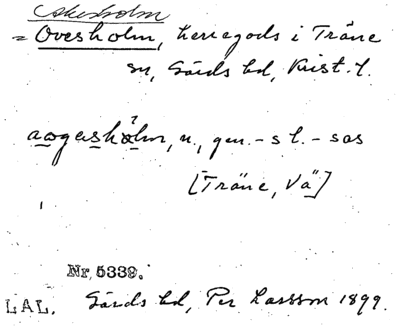 Ovesholm
= Ovesholm, herregods i Träne
sn, Gärds hd, Krist. l.
aogashòlm, n., gen. -s l. -sas
[Träne, Vä]
Nr. 5339.
LAL. Gärds hd, Per Larsson 1899.